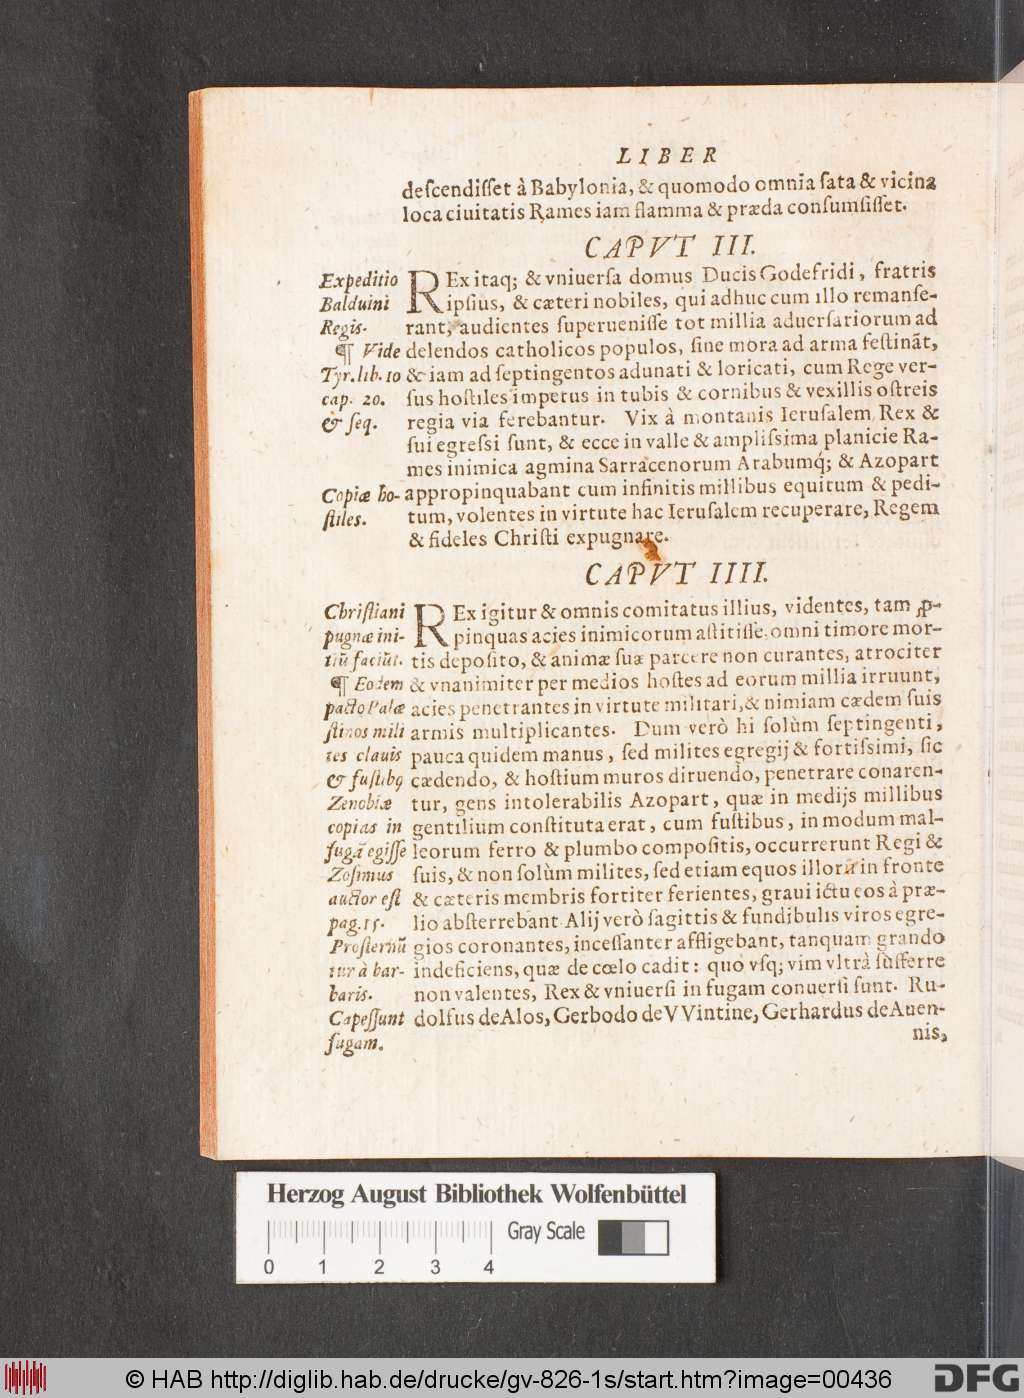 LIBER
descendisset à Babylonia, & quomodo omnia sata & vicina
loca ciuitatis Rames iam flamma & præda consumsisset.
CAPVT III.
Expeditio
Balduini
Regis.
¶ Vide
Tyr. lib. 10
cap. 20.
& seq.
Copiæ ho-
stiles.
REx itaq; & vniuersa domus Ducis Godefridi, fratris
ipsius, & cæteri nobiles, qui adhuc cum illo remanse-
rant, audientes superuenisse tot millia aduersariorum ad
delendos catholicos populos, sine mora ad arma festinãt,
& iam ad septingentos adunati & loricati, cum Rege ver-
sus hostiles impetus in tubis & cornibus & vexillis ostreis
regia via ferebantur. Vix à montanis Ierusalem Rex &
sui egressi sunt, & ecce in valle & amplissima planicie Ra-
mes inimica agmina Sarracenorum Arabumq́; & Azopart
appropinquabant cum infinitis millibus equitum & pedi-
tum, volentes in virtute hac Ierusalem recuperare, Regem
& fideles Christi expugnare.
CAPVT IIII.
Christiani
pugnæ ini-
tiũ faciũt.
¶ Eodem
pacto Palæ
stinos mili
tes clauis
& fustibꝗ
Zenobiæ
copias in
fugã egisse
Zosimus
auctor est
pag. 15.
Prosternũ
tur à bar-
baris.
Capessunt
fugam.
REx igitur & omnis comitatus illius, videntes, tam ꝓ-
pinquas acies inimicorum astitisse, omni timore mor-
tis deposito, & animæ suæ parcere non curantes, atrociter
& vnanimiter per medios hostes ad eorum millia irruunt,
acies penetrantes in virtute militari, & nimiam cædem suis
armis multiplicantes. Dum verò hi solùm septingenti,
pauca quidem manus, sed milites egregij & fortissimi, sic
cædendo, & hostium muros diruendo, penetrare conaren-
tur, gens intolerabilis Azopart, quæ in medijs millibus
gentilium constituta erat, cum fustibus, in modum mal-
leorum ferro & plumbo compositis, occurrerunt Regi &
suis, & non solùm milites, sed etiam equos illorũ in fronte
& cæteris membris fortiter ferientes, graui ictu eos à præ-
lio absterrebant. Alij verò sagittis & fundibulis viros egre-
gios coronantes, incessanter affligebant, tanquam grando
indeficiens, quæ de cœlo cadit: quo vsq; vim vltrà sufferre
non valentes, Rex & vniuersi in fugam conuersi sunt. Ru-
dolfus de Alos, Gerbodo de VVintine, Gerhardus de Auen-
nis,
Herzog August Bibliothek Wolfenbüttel
Gray Scale
0 1 2 3 4
© HAB http://diglib.hab.de/drucke/gv-826-1s/start.htm?image=00436
DFG